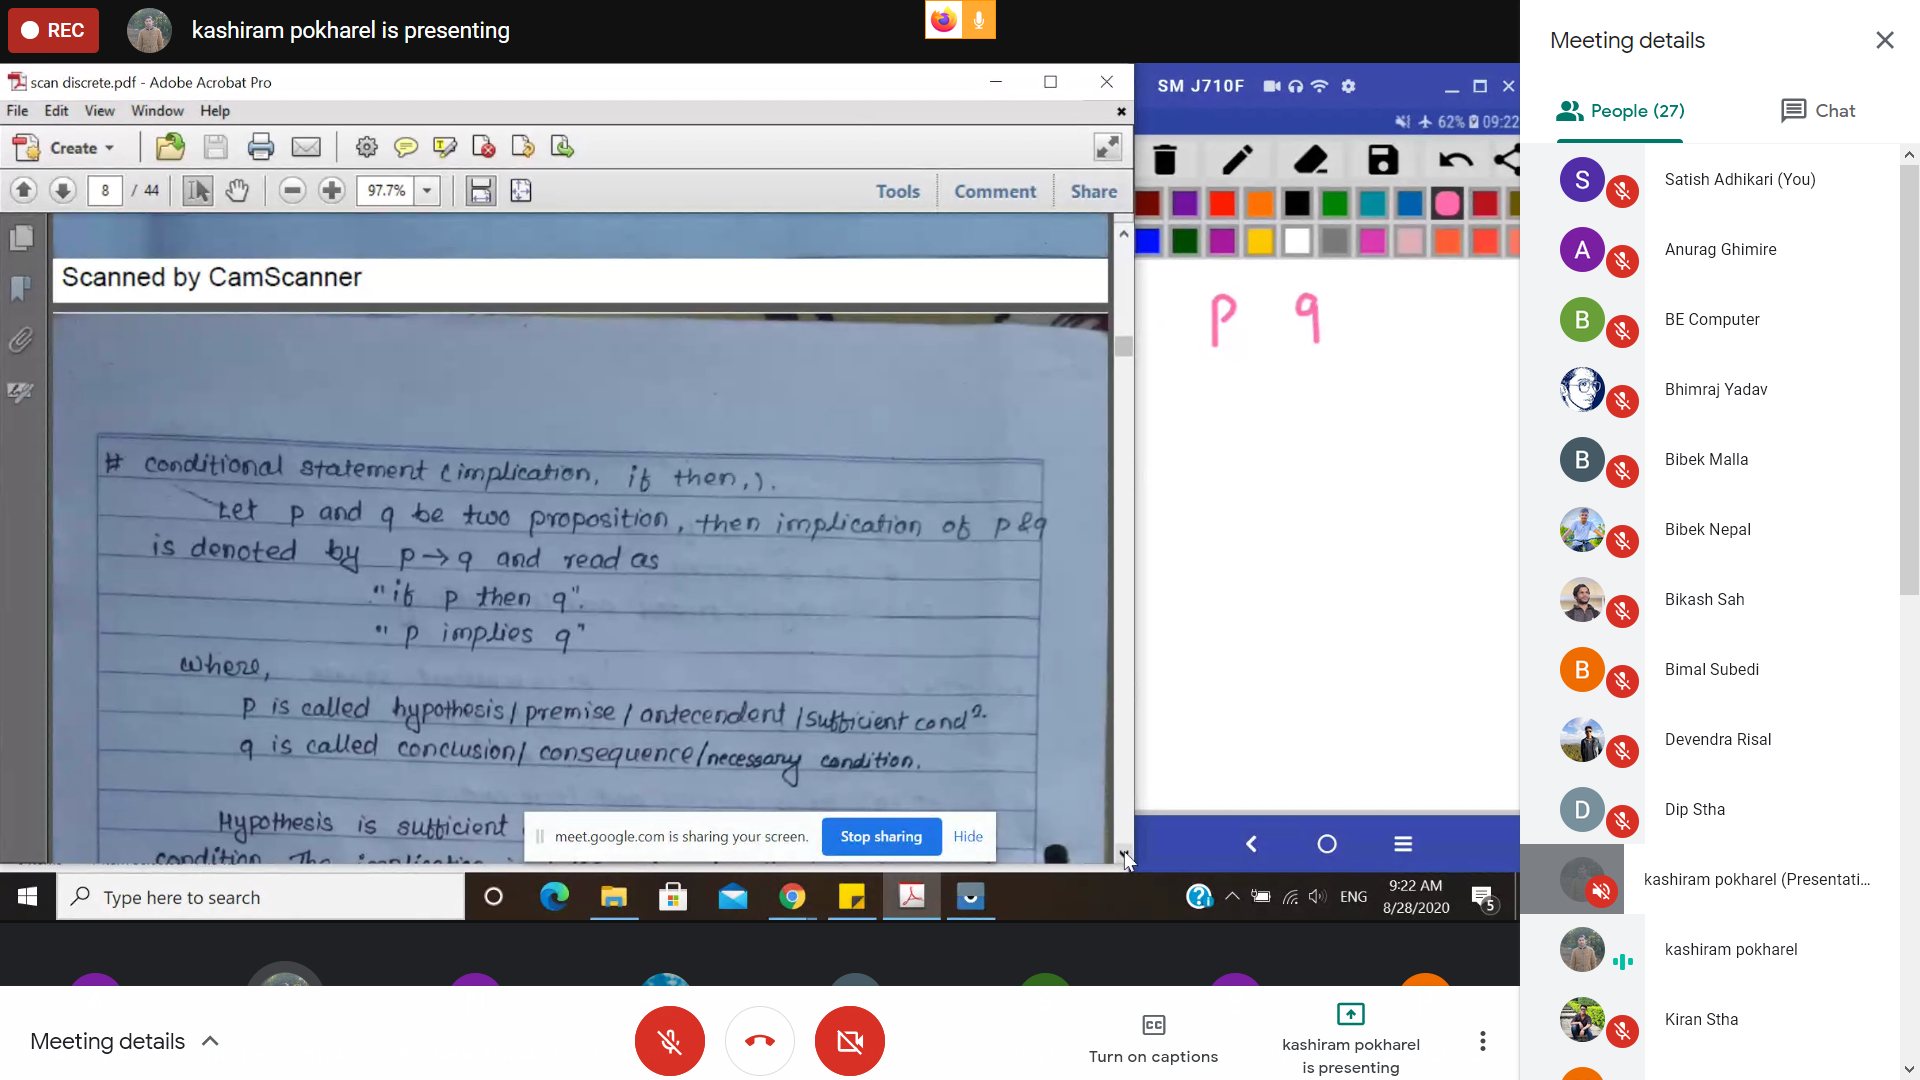 REC
kashiram pokharel is presenting
Meeting details
scan discrete.pdf - Adobe Acrobat Pro
File Edit View Window Help
Create
8 / 44
97.7%
Tools Comment Share
Scanned by CamScanner
# conditional statement (implication, if then,).
Let p and q be two proposition, then implication of p & q
is denoted by p → q and read as
"if p then q".
" p implies q"
where,
p is called hypothesis / premise / antecendent / sufficient condn.
q is called conclusion / consequence / necessary condition.
Hypothesis is sufficient
condition The implication
meet.google.com is sharing your screen. Stop sharing Hide
SM J710F
62% 09:22
p q
Type here to search
ENG
9:22 AM
8/28/2020
5
Meeting details
Turn on captions
kashiram pokharel
is presenting
People (27)
Chat
S Satish Adhikari (You)
A Anurag Ghimire
B BE Computer
Bhimraj Yadav
B Bibek Malla
Bibek Nepal
Bikash Sah
B Bimal Subedi
Devendra Risal
D Dip Stha
kashiram pokharel (Presentati...
kashiram pokharel
Kiran Stha